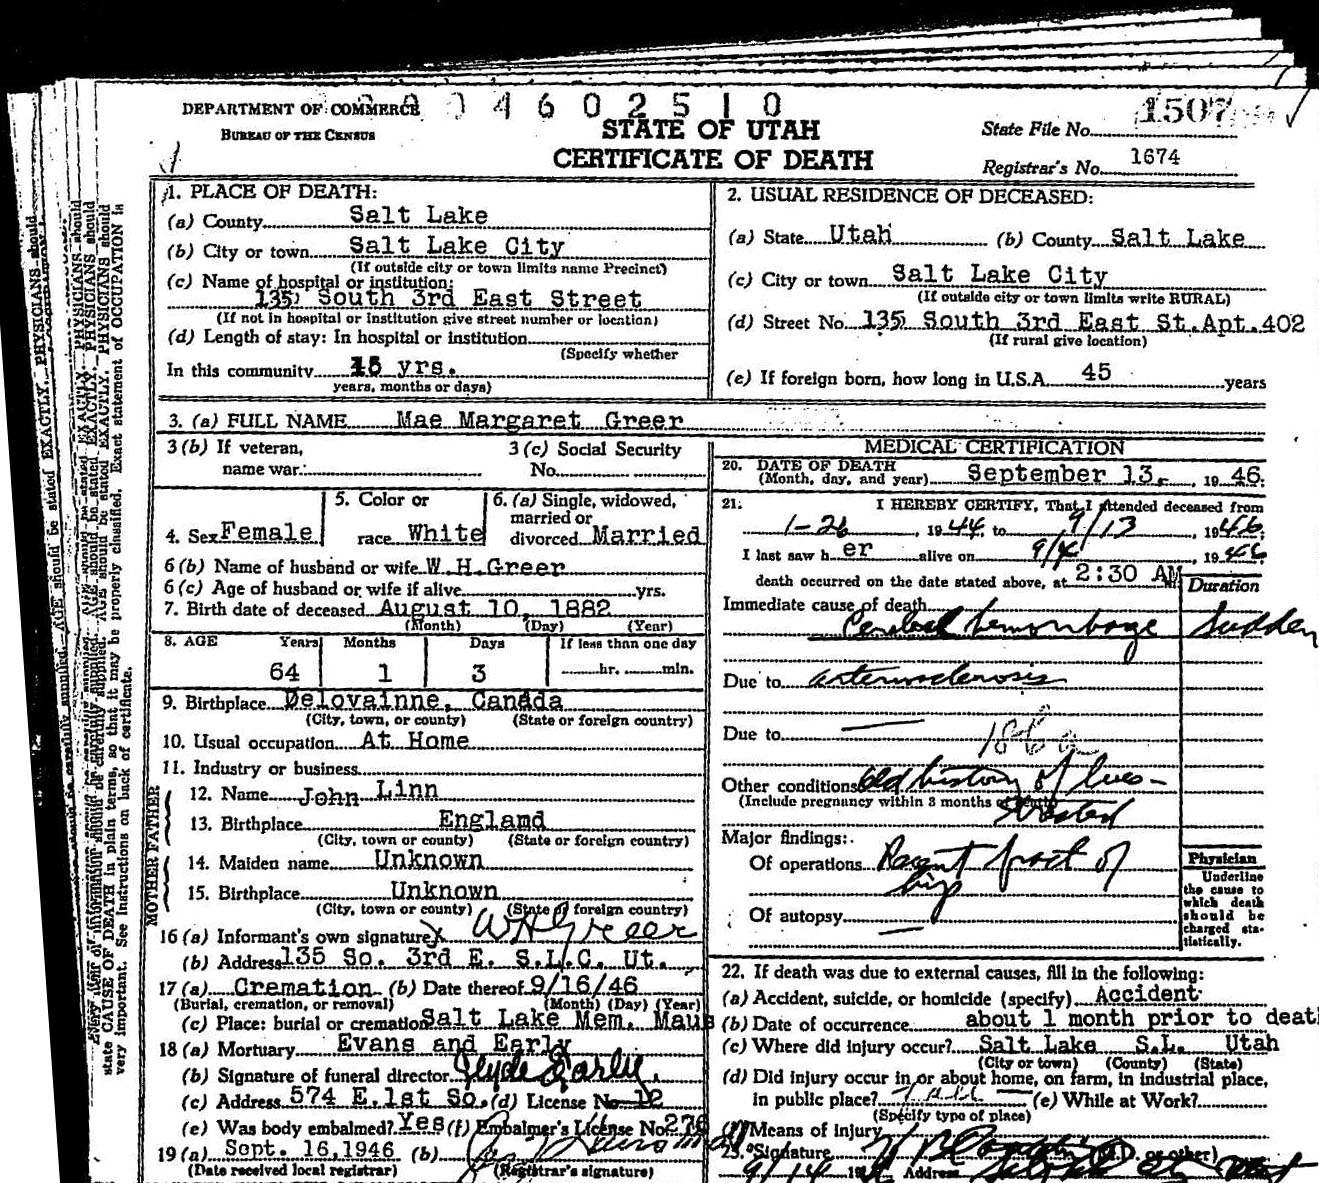 0 0 4 6 0 2 5 1 0
DEPARTMENT OF COMMERCE
BUREAU OF THE CENSUS
STATE OF UTAH
CERTIFICATE OF DEATH
State File No. 1507
Registrar's No. 1674
1. PLACE OF DEATH:
(a) County Salt Lake
(b) City or town Salt Lake City
(If outside city or town limits name Precinct)
(c) Name of hospital or institution:
135 South 3rd East Street
(If not in hospital or institution give street number or location)
(d) Length of stay: In hospital or institution
(Specify whether
In this community 15 yrs.
years, months or days)
2. USUAL RESIDENCE OF DECEASED:
(a) State Utah (b) County Salt Lake
(c) City or town Salt Lake City
(If outside city or town limits write RURAL)
(d) Street No. 135 South 3rd East St. Apt. 402
(If rural give location)
(e) If foreign born, how long in U.S.A. 45 years
3. (a) FULL NAME Mae Margaret Greer
3 (b) If veteran,
name war.
3 (c) Social Security
No.
4. Sex Female
5. Color or
race White
6. (a) Single, widowed,
married or
divorced Married
6 (b) Name of husband or wife W. H. Greer
6 (c) Age of husband or wife if alive yrs.
7. Birth date of deceased August 10, 1882
(Month) (Day) (Year)
8. AGE Years Months Days If less than one day
64 1 3 hr. min.
9. Birthplace Delovainne, Canada
(City, town, or county) (State or foreign country)
10. Usual occupation At Home
11. Industry or business
FATHER
12. Name John Linn
13. Birthplace Englamd
(City, town, or county) (State or foreign country)
MOTHER
14. Maiden name Unknown
15. Birthplace Unknown
(City, town or county) (State of foreign country)
16 (a) Informant's own signature x W H Greer
(b) Address 135 So. 3rd E. S.L.C. Ut.
17 (a) Cremation (b) Date thereof 9/16/46
(Burial, cremation, or removal) (Month) (Day) (Year)
(c) Place: burial or cremation Salt Lake Mem. Maus
18 (a) Mortuary Evans and Early
(b) Signature of funeral director Clyde Early
(c) Address 574 E. 1st So. (d) License No. 12
(e) Was body embalmed? Yes (f) Embalmer's License No. 276
19 (a) Sept. 16, 1946 (b)
(Date received local registrar) (Registrar's signature)
MEDICAL CERTIFICATION
20. DATE OF DEATH
(Month, day, and year) September 13, 1946.
21. I HEREBY CERTIFY, That I attended deceased from
1-26, 1944, to 9/13, 1946.
I last saw her alive on 9/4, 1946
death occurred on the date stated above, at 2:30 AM
Duration
Immediate cause of death
Cerebral hemorrhage Sudden
Due to arteriosclerosis
Due to —
186a
Other conditions Old history of lues -
(Include pregnancy within 3 months of death)
treated
Major findings:
Of operations Recent fract of
hip
Of autopsy —
Physician
Underline
the cause to
which death
should be
charged sta-
tistically.
22. If death was due to external causes, fill in the following:
(a) Accident, suicide, or homicide (specify) Accident
(b) Date of occurrence about 1 month prior to deat
(c) Where did injury occur? Salt Lake S.L. Utah
(City or town) (County) (State)
(d) Did injury occur in or about home, on farm, in industrial place,
in public place? (e) While at Work?
(Specify type of place)
(f) Means of injury
23. Signature (M.D. or other)
9/14 Address Salt Lake City Utah
state CAUSE OF DEATH in plain terms, so that it may be properly classified. Exact statement of OCCUPATION is
very important. See instructions on back of certificate.